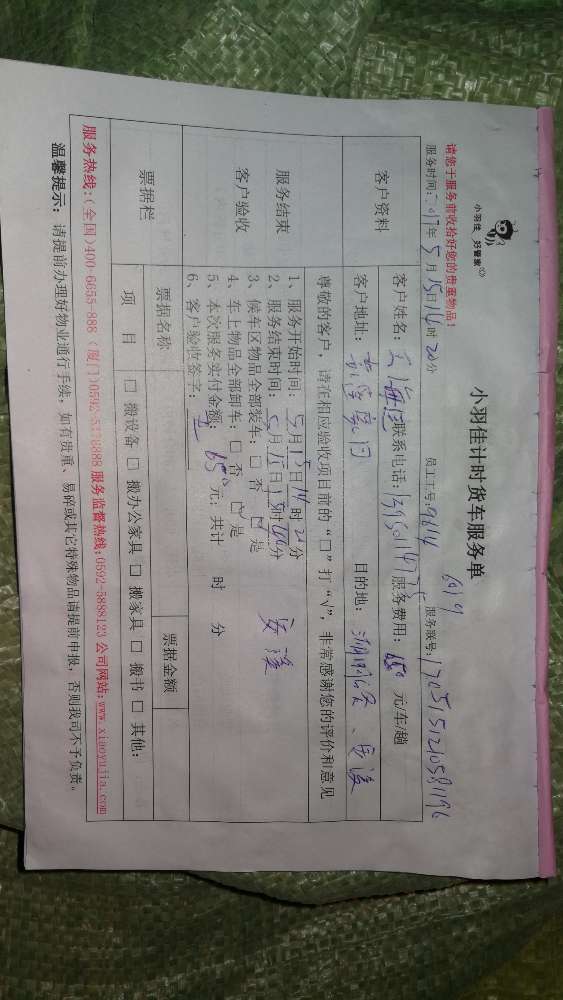 小羽佳 好管家
小羽佳计时货车服务单
请您于服务前收拾好您的贵重物品！
服务时间：2017年5月15日14时20分 员工工号：9614 服务账号：
客户资料
客户姓名： 联系电话： 服务费用：650元/车/趟
客户地址： 目的地：
尊敬的客户，请在相应验收项目前的“□”打“√”，非常感谢您的评价和意见
服务结束
客户验收
1、服务开始时间：5月15日14时20分
2、服务结束时间：5月15日18时00分
3、候车区物品全部装车：□否 ☑是
4、车上物品全部卸车：□否 ☑是
5、本次服务实付金额：650元；共计 时 分
6、客户验收签字：
安溪
票据栏
票据名称 票据金额
项目 □搬设备 □搬办公家具 □搬家具 □搬书 □其他：
服务热线：(全国)400-6655-888 (厦门)0592-5178888 服务监督热线：0592-5888123 公司网站：www.xiaoyujia.com
温馨提示：请提前办理好物业通行手续，如有贵重、易碎或其它特殊物品请提前申报，否则我司不予负责。